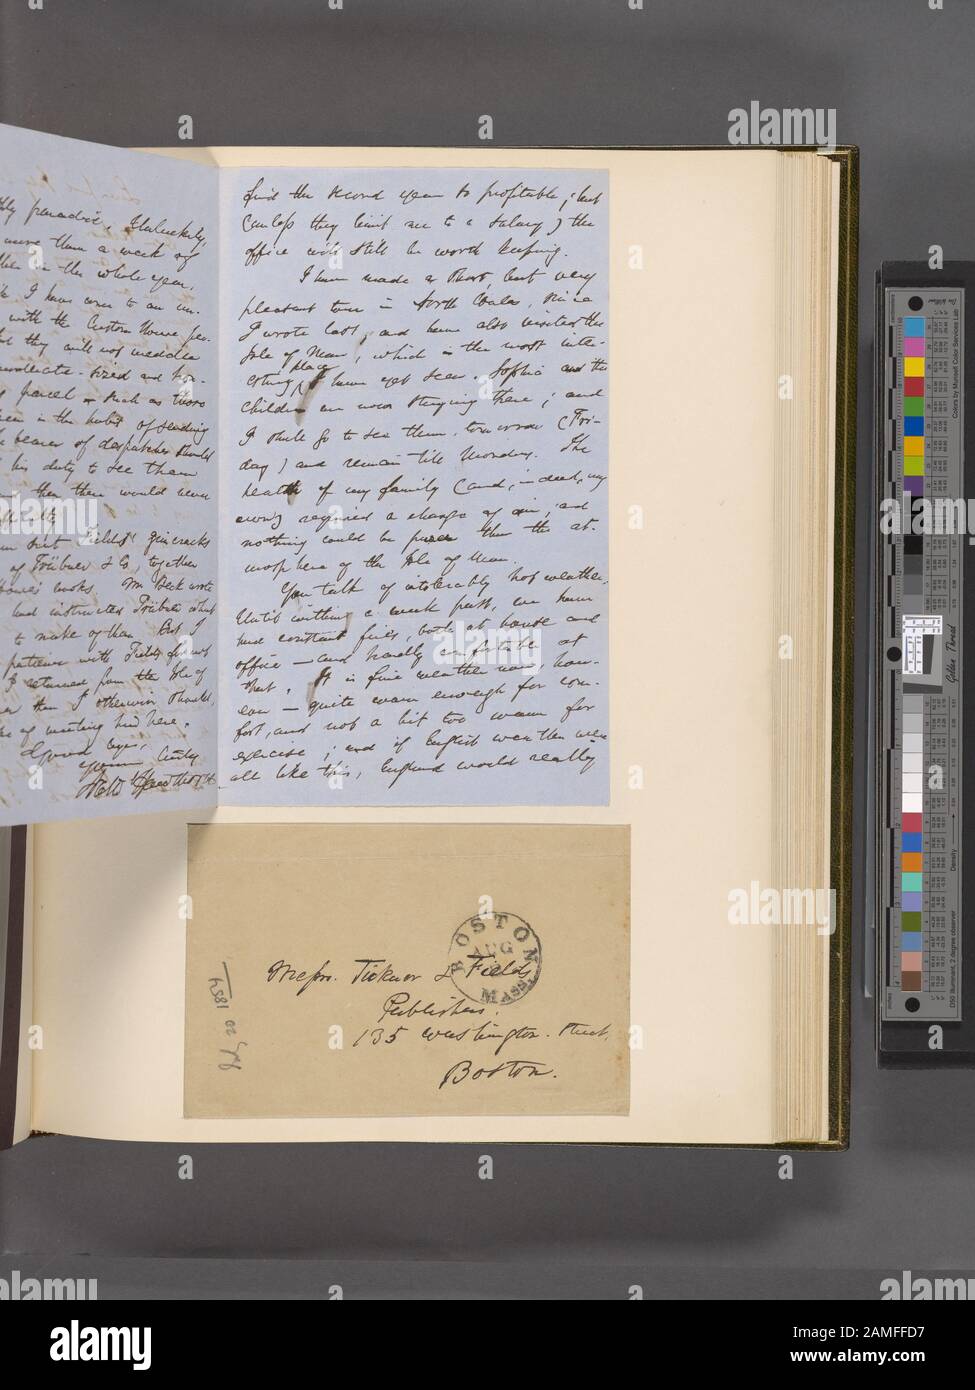 thly paradise. Unluckily,
more than a week of
in the whole year.
I have come to an un-
with the Custom House peo-
they will not meddle
moderate-sized and hon-
parcel such as those
been in the habit of sending
bearer of despatches should
his duty to see them
then there would never
Fields' gimcracks
of Trübner & Co, together
books. Wm Beck wrote
had instructed Trübner what
to make of them. But I
patience with Fields for not
I returned from the Isle of
than I otherwise should,
of meeting him here.
Good bye,
Yours truly
Nath Hawthorne
find the second year so profitable; but
(unless they limit me to a salary) the
office will still be worth keeping.
I have made a short, but very
pleasant tour in North Wales, since
I wrote last, and have also visited the
Isle of Man, which is the most inte-
resting place I have yet seen. Sophia and the
children are now staying there; and
I shall go to see them, tomorrow (Fri-
day) and remain till Monday. The
health of my family (and, indeed, my
own) required a change of air; and
nothing could be purer than the at-
mosphere of the Isle of Man.
You talk of intolerably hot weather.
Until within a week past, we have
had constant fires, both at house and
office — and hardly comfortable at
that. It is fine weather now, how-
ever — quite warm enough for com-
fort, and not a bit too warm for
exercise; and if English weather were
all like this, England would really
BOSTON
AUG
MASS.
Messrs. Ticknor & Fields,
Publishers.
135 Washington street,
Boston.
July 20 1854
alamy
Image ID: 2AMFFD7
www.alamy.com